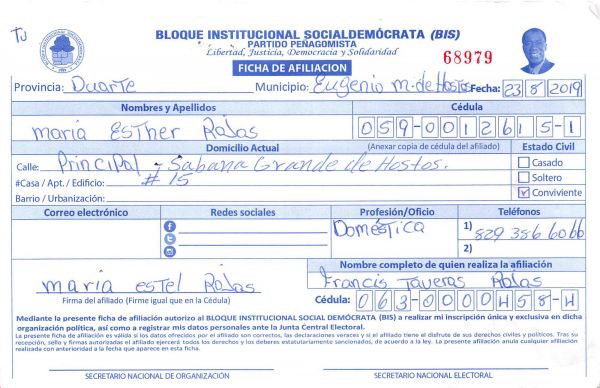 TU
BLOQUE INSTITUCIONAL SOCIALDEMÓCRATA (BIS)
PARTIDO PEÑAGOMISTA
Libertad, Justicia, Democracia y Solidaridad
68979
FICHA DE AFILIACION
Provincia: Duarte Municipio: Eugenio m. de Hostos Fecha: 23/8/2019
Nombres y Apellidos Cédula
maría Esther Rojas 059-0012615-1
Domicilio Actual (Anexar copia de cédula del afiliado) Estado Civil
Calle: Principal - Sabana Grande de Hostos. Casado
#Casa / Apt. / Edificio: #15 Soltero
Barrio / Urbanización: Conviviente
Correo electrónico Redes sociales Profesión/Oficio Teléfonos
Doméstica 1) 829 386 6066
2)
Nombre completo de quien realiza la afiliación
maría estel Rojas Francis Taveras Rojas
Firma del afiliado (Firme igual que en la Cédula) Cédula: 063-0000458-4
Mediante la presente ficha de afiliación autorizo al BLOQUE INSTITUCIONAL SOCIAL DEMÓCRATA (BIS) a realizar mi inscripción única y exclusiva en dicha
organización política, así como a registrar mis datos personales ante la Junta Central Electoral.
La presente ficha de afiliación es válida si los datos ofrecidos por el afiliado son correctos, las declaraciones veraces y si el afiliado tiene el disfrute de sus derechos civiles y políticos. Tras su
recepción, sello y firmas autorizadas el afiliado ejercerá todos los derechos y los deberes estatutariamente sancionados, de acuerdo a la ley. La presente afiliación anula cualquier afiliación
realizada con anterioridad a la fecha que aparece en esta ficha.
SECRETARIO NACIONAL DE ORGANIZACIÓN SECRETARIO NACIONAL ELECTORAL